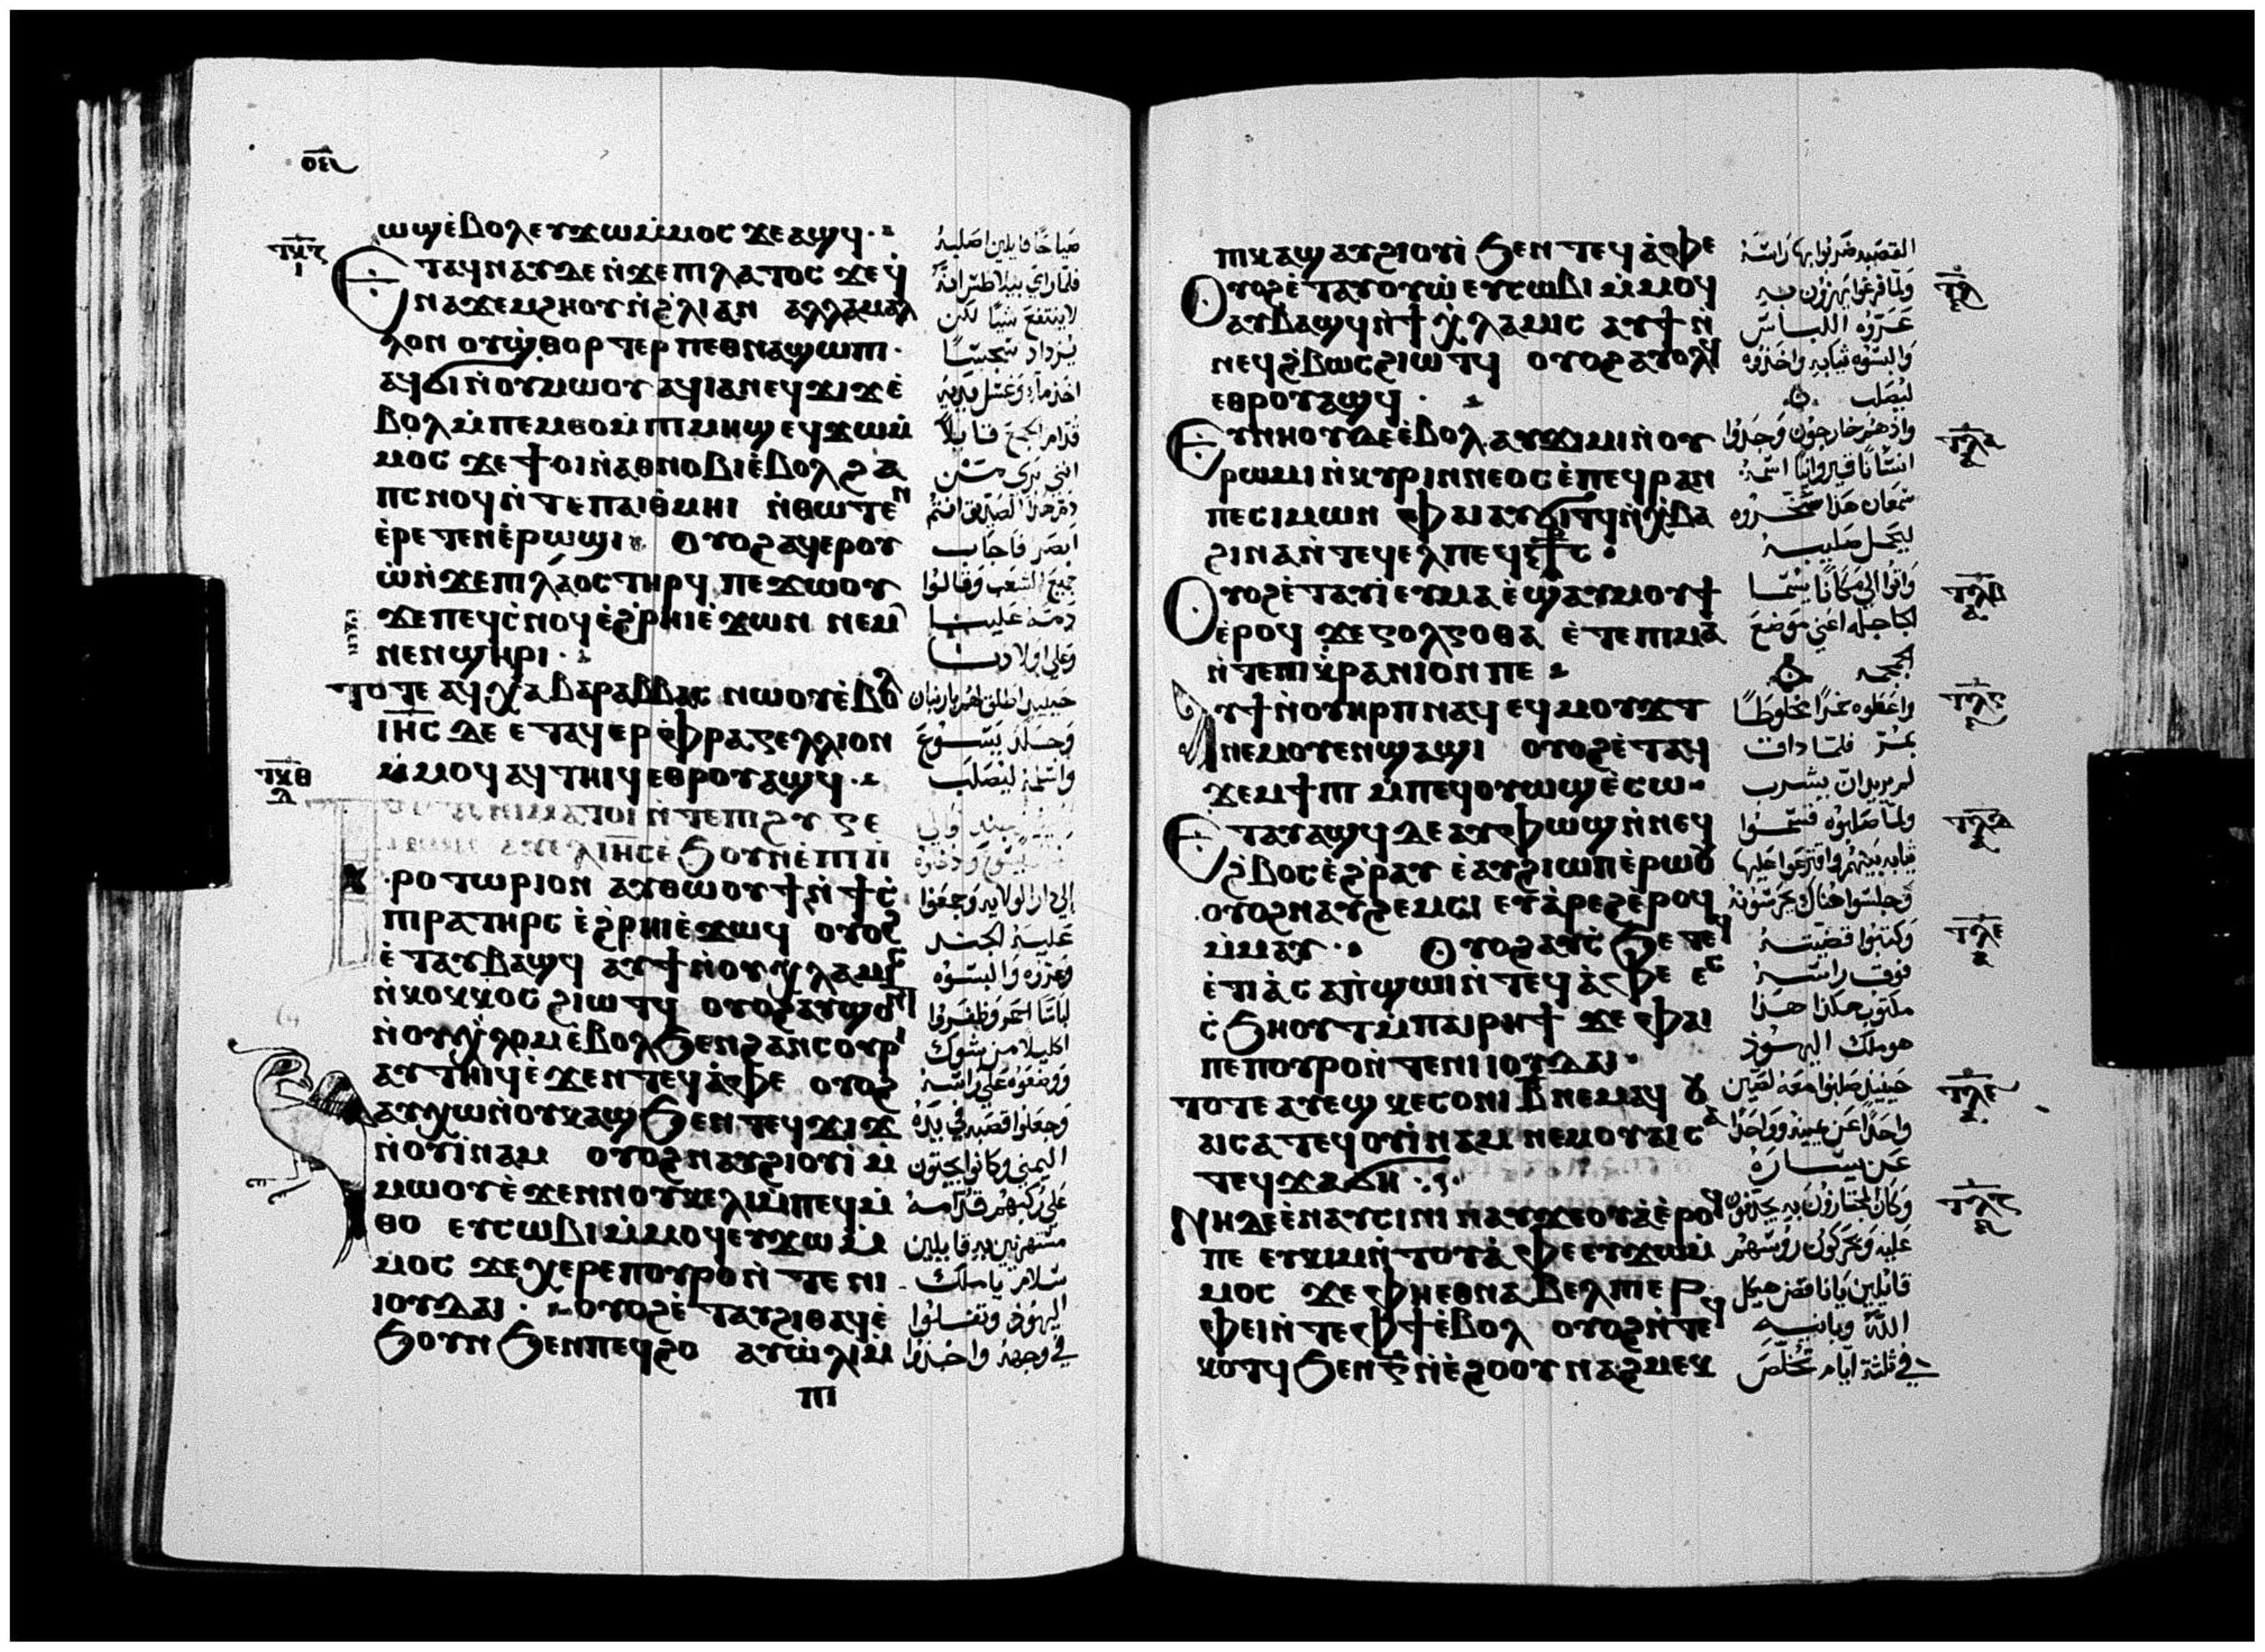 ⲱϣ ⲉ̀ⲃⲟⲗ ⲉⲩϫⲱ ⲙ̀ⲙⲟⲥ ϫⲉ ⲁϣϥ
ⲉⲧⲁϥⲛⲁⲩ ⲇⲉ ⲛ̀ϫⲉ ⲡⲓⲗⲁⲧⲟⲥ ϫⲉ ϥ̀
ⲛⲁϫⲉⲙϩⲏⲟⲩ ⲛ̀ϩ̀ⲗⲓ ⲁⲛ ⲁⲗⲗⲁ ⲙⲁⲗ
ⲗⲟⲛ ⲟⲩϣ̀ⲑⲟⲣⲧⲉⲣ ⲡⲉⲑⲛⲁϣⲱⲡⲓ
ⲁϥϭⲓ ⲛ̀ⲟⲩⲙⲱⲟⲩ ⲁϥⲓⲁ ⲛⲉϥϫⲓϫ ⲉ̀
ⲃⲟⲗ ⲙ̀ⲡⲉⲙⲑⲟ ⲙ̀ⲡⲓⲙⲏϣ ⲉϥϫⲱ ⲙ̀
ⲙⲟⲥ ϫⲉ ϯⲟⲓ ⲛ̀ⲁⲑⲛⲟⲃⲓ ⲉ̀ⲃⲟⲗ ϩⲁ
ⲡⲥⲛⲟϥ ⲛ̀ⲧⲉ ⲡⲁⲓⲑ̀ⲙⲏⲓ ⲛ̀ⲑⲱⲧⲉⲛ
ⲉ̀ⲣⲉⲧⲉⲛⲉ̀ⲣⲱϣⲓ ⲟⲩⲟϩ ⲁϥⲉⲣⲟⲩ
ⲱ̀ ⲛ̀ϫⲉ ⲡⲓⲗⲁⲟⲥ ⲧⲏⲣϥ ⲡⲉϫⲱⲟⲩ
ϫⲉ ⲡⲉϥⲥ̀ⲛⲟϥ ⲉ̀ϩ̀ⲣⲏⲓ ⲉ̀ϫⲱⲛ ⲛⲉⲙ
ⲛⲉⲛϣⲏⲣⲓ
ⲧⲟⲧⲉ ⲁϥⲭⲁ ⲃⲁⲣⲁⲃⲃⲁⲥ ⲛⲱⲟⲩ ⲉ̀ⲃⲟⲗ
ⲓⲏ̅ⲥ̅ ⲇⲉ ⲉⲧⲁϥⲉⲣⲫⲣⲁⲅⲉⲗⲗⲓⲟⲛ
ⲙ̀ⲙⲟϥ ⲁϥⲧⲏⲓϥ ⲉⲑⲣⲟⲩⲁϣϥ
ⲙⲁⲧⲟⲓ ⲛ̀ⲧⲉ ⲡⲓϩⲩⲅⲉ
ⲓⲏ̅ⲥ̅ ⲉ̀ϧⲟⲩⲛ ⲉ̀ⲡⲓⲡ̀
ⲣⲟⲧⲱⲣⲓⲟⲛ ⲁⲩⲑⲱⲟⲩϯ ⲛ̀ϯⲥ̀
ⲡⲓⲣⲁⲧⲏⲣⲥ ⲉ̀ϩ̀ⲣⲏⲓ ⲉ̀ϫⲱϥ ⲟⲩⲟϩ
ⲉ̀ⲧⲁⲩⲃⲁϣϥ ⲁⲩϯ ⲛ̀ⲟⲩⲭⲗⲁⲙⲓⲥ
ⲛ̀ⲕⲟⲕⲕⲟⲥ ϩⲓⲱⲧϥ ⲟⲩⲟϩ ⲁⲩϣⲱⲛⲧ
ⲛ̀ⲟⲩⲭ̀ⲗⲟⲙ ⲉ̀ⲃⲟⲗ ϧⲉⲛ ϩⲁⲛⲥⲟⲩⲣⲓ
ⲁⲩⲧⲏⲓϥ ⲉ̀ϫⲉⲛ ⲧⲉϥⲁ̀ⲫⲉ ⲟⲩⲟϩ
ⲁⲩⲭⲱ ⲛ̀ⲟⲩⲕⲁϣ ϧⲉⲛ ⲧⲉϥϫⲓϫ
ⲛ̀ⲟⲩⲓ̀ⲛⲁⲙ ⲟⲩⲟϩ ⲛⲁⲩϩⲓⲟⲩⲓ̀ ⲙ̀
ⲙⲱⲟⲩ ⲉ̀ϫⲉⲛ ⲛⲟⲩⲕⲉⲗⲓ ⲙ̀ⲡⲉϥⲙ̀
ⲑⲟ ⲉⲩⲥⲱⲃⲓ ⲙ̀ⲙⲟϥ ⲉⲩϫⲱ ⲙ̀
ⲙⲟⲥ ϫⲉ ⲭⲉⲣⲉ ⲡⲟⲩⲣⲟ ⲛ̀ⲧⲉ ⲛⲓ
ⲓⲟⲩⲇⲁⲓ ⲟⲩⲟϩ ⲉ̀ⲧⲁⲩϩⲓⲑⲁϥ ⲉ̀
ϧⲟⲩⲛ ϧⲉⲛ ⲡⲉϥϩⲟ ⲁⲩⲱ̀ⲗⲓ ⲙ̀
ⲡⲓ
صياحًا قايلين اصلبه
فلما راي بيلاطس انه
لا ينتفع شيًا لكن
يزداد سجسًا
اخذ مآء وغسل يديه
قدام الجمع قايلاً
انني بري من
دم هذا الصديق انتم
ابصر فاجاب
جميع الشعب وقالوا
دمه علينا
وعلي اولادنا
حينيذ اطلق لهم باربان
وجلد يسوع
واسلمه ليصلب
الي دار الولايه وجمعوا
عليه الجند
وعروه والبسوه
لباسًا احمر وظفروا
اكليلا من شوك
ووضعوه علي راسه
وجعلوا قصبه في يده
اليمني وكانوا يجثون
علي ركبهم قدامه
مستهزيين به قايلين
سلام يا ملك
اليهود وتفلوا
في وجهه واخذوا
ⲡⲓⲕⲁϣ ⲁⲩϩⲓⲟⲩⲓ̀ ϧⲉⲛ ⲧⲉϥⲁ̀ⲫⲉ
ⲟⲩⲟϩ ⲉ̀ⲧⲁⲩⲟⲩⲱ̀ ⲉⲩⲥⲱⲃⲓ ⲙ̀ⲙⲟϥ
ⲁⲩⲃⲁϣϥ ⲛ̀ϯⲭ̀ⲗⲁⲙⲓⲥ ⲁⲩϯ ⲛ̀
ⲛⲉϥϩ̀ⲃⲱⲥ ϩⲓⲱⲧϥ ⲟⲩⲟϩ ⲁⲩⲟⲗϥ
ⲉⲑⲣⲟⲩⲁϣϥ
ⲉⲩⲛⲏⲟⲩ ⲇⲉ ⲉ̀ⲃⲟⲗ ⲁⲩϫⲓⲙⲓ ⲛ̀ⲟⲩ
ⲣⲱⲙⲓ ⲛ̀ⲕⲩⲣⲓⲛⲛⲉⲟⲥ ⲉ̀ⲡⲉϥⲣⲁⲛ
ⲡⲉ ⲥⲓⲙⲱⲛ ⲫⲁⲓ ⲁⲩϭⲓⲧϥ ⲛ̀ⲭ̀ⲃⲁ
ϩⲓⲛⲁ ⲛ̀ⲧⲉϥⲉⲗ ⲡⲉϥⲥϯⲥ
ⲟⲩⲟϩ ⲉ̀ⲧⲁⲩⲓ̀ ⲉⲩⲙⲁ ⲉ̀ϣⲁⲩⲙⲟⲩϯ
ⲉ̀ⲣⲟϥ ϫⲉ ⲅⲟⲗⲅⲟⲑⲁ ⲉ̀ⲧⲉ ⲡⲓⲙⲁ
ⲛ̀ⲧⲉ ⲡⲓⲕ̀ⲣⲁⲛⲓⲟⲛ ⲡⲉ
ⲁⲩϯ ⲛ̀ⲟⲩⲏⲣⲡ ⲛⲁϥ ⲉϥⲙⲟⲩϫⲧ
ⲛⲉⲙ ⲟⲩⲉⲛϣⲁϣⲓ ⲟⲩⲟϩ ⲉ̀ⲧⲁϥ
ϫⲉⲙϯⲡⲓ ⲙ̀ⲡⲉϥⲟⲩⲱϣ ⲉ̀ⲥⲱ
ⲉⲧⲁⲩⲁϣϥ ⲇⲉ ⲁⲩⲫⲱϣ ⲛ̀ⲛⲉϥ
ϩ̀ⲃⲟⲥ ⲉ̀ϩ̀ⲣⲁⲩ ⲉ̀ⲁⲩϩⲓⲱⲡ ⲉ̀ⲣⲱⲟⲩ
ⲟⲩⲟϩ ⲛⲁⲩϩⲉⲙⲥⲓ ⲉⲩⲁ̀ⲣⲉϩ ⲉ̀ⲣⲟϥ
ⲙ̀ⲙⲁⲩ ⲟⲩⲟϩ ⲁⲩⲥ̀ϧⲉ ⲧⲉϥ
ⲉ̀ⲧⲓⲁ̀ ⲥⲁⲡ̀ϣⲱⲓ ⲛ̀ⲧⲉϥⲁ̀ⲫⲉ ⲉⲥ
ⲥ̀ϧⲏⲟⲩⲧ ⲙ̀ⲡⲁⲓⲣⲏϯ ϫⲉ ⲫⲁⲓ
ⲡⲉ ⲡⲟⲩⲣⲟ ⲛ̀ⲧⲉ ⲛⲓⲓⲟⲩⲇⲁⲓ
ⲧⲟⲧⲉ ⲁⲩⲉϣ ⲕⲉⲥⲟⲛⲓ ⲃ̅ ⲛⲉⲙⲁϥ ⲟⲩ
ⲁⲓ ⲥⲁⲧⲉϥⲟⲩⲓ̀ⲛⲁⲙ ⲛⲉⲙ ⲟⲩⲁⲓ ⲥⲁ
ⲧⲉϥϫⲁϭⲏ
ⲛⲏ ⲇⲉ ⲉ̀ⲛⲁⲩⲥⲓⲛⲓ ⲛⲁⲩϫⲉⲟⲩⲁ̀ ⲉ̀ⲣⲟϥ
ⲡⲉ ⲉⲩⲕⲓⲙ ⲛ̀ⲧⲟⲩⲁ̀ⲫⲉ ⲉⲩϫⲱ ⲙ̀
ⲙⲟⲥ ϫⲉ ⲫⲏ ⲉⲑⲛⲁⲃⲉⲗ ⲡⲓⲉⲣ
ⲫⲉⲓ ⲛ̀ⲧⲉ ⲫϯ ⲉ̀ⲃⲟⲗ ⲟⲩⲟϩ ⲛ̀ⲧⲉϥ
ⲕⲟⲧϥ ϧⲉⲛ ⲅ̅ ⲛ̀ⲉ̀ϩⲟⲟⲩ ⲛⲁϩⲙⲉⲕ
القصبه ضربوا بها راسه
ولما فرغوا يهزؤن به
عروه اللباس
والبسوه ثيابه واخذوه
ليصلب
واذ هم خارجون وجدوا
انسانًا قيروانيًا اسمه
سمعان هذا سخروه
ليحمل صليبه
واتوا الي مكانًا يسما
الجاجله اعني موضع
الجمجمه
واعطوه خمرًا مخلوطًا
بمر فلما ذاق
لم يريد ان يشرب
ولما صلبوه قسموا
ثيابه بينهم واقترعوا عليها
وجلسوا هناك يحرسونه
وكتبوا قضيته
فوق راسه
مكتوب هكذا هذا
هو ملك اليهود
حينيذ صلبوا معه لصين
واحدًا عن يمينه وواحدًا
عن يساره
وكان المجتازون به يجدفون
عليه ويحركون روسهم
قايلين يا ناقض هيكل
الله وبانيه
في ثلثة ايام تخلص